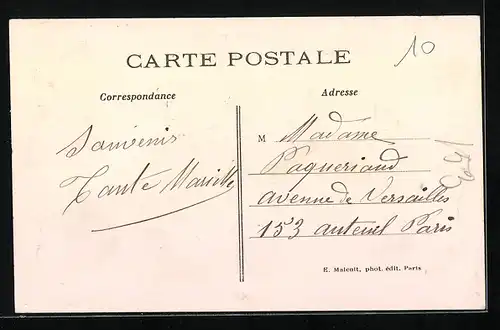 10
CARTE POSTALE
Correspondance
Adresse
Souvenir
Tante Marie
M Madame
Paqueriaud
avenue de Versailles
153 auteuil Paris
E. Malcuit, phot. édit. Paris